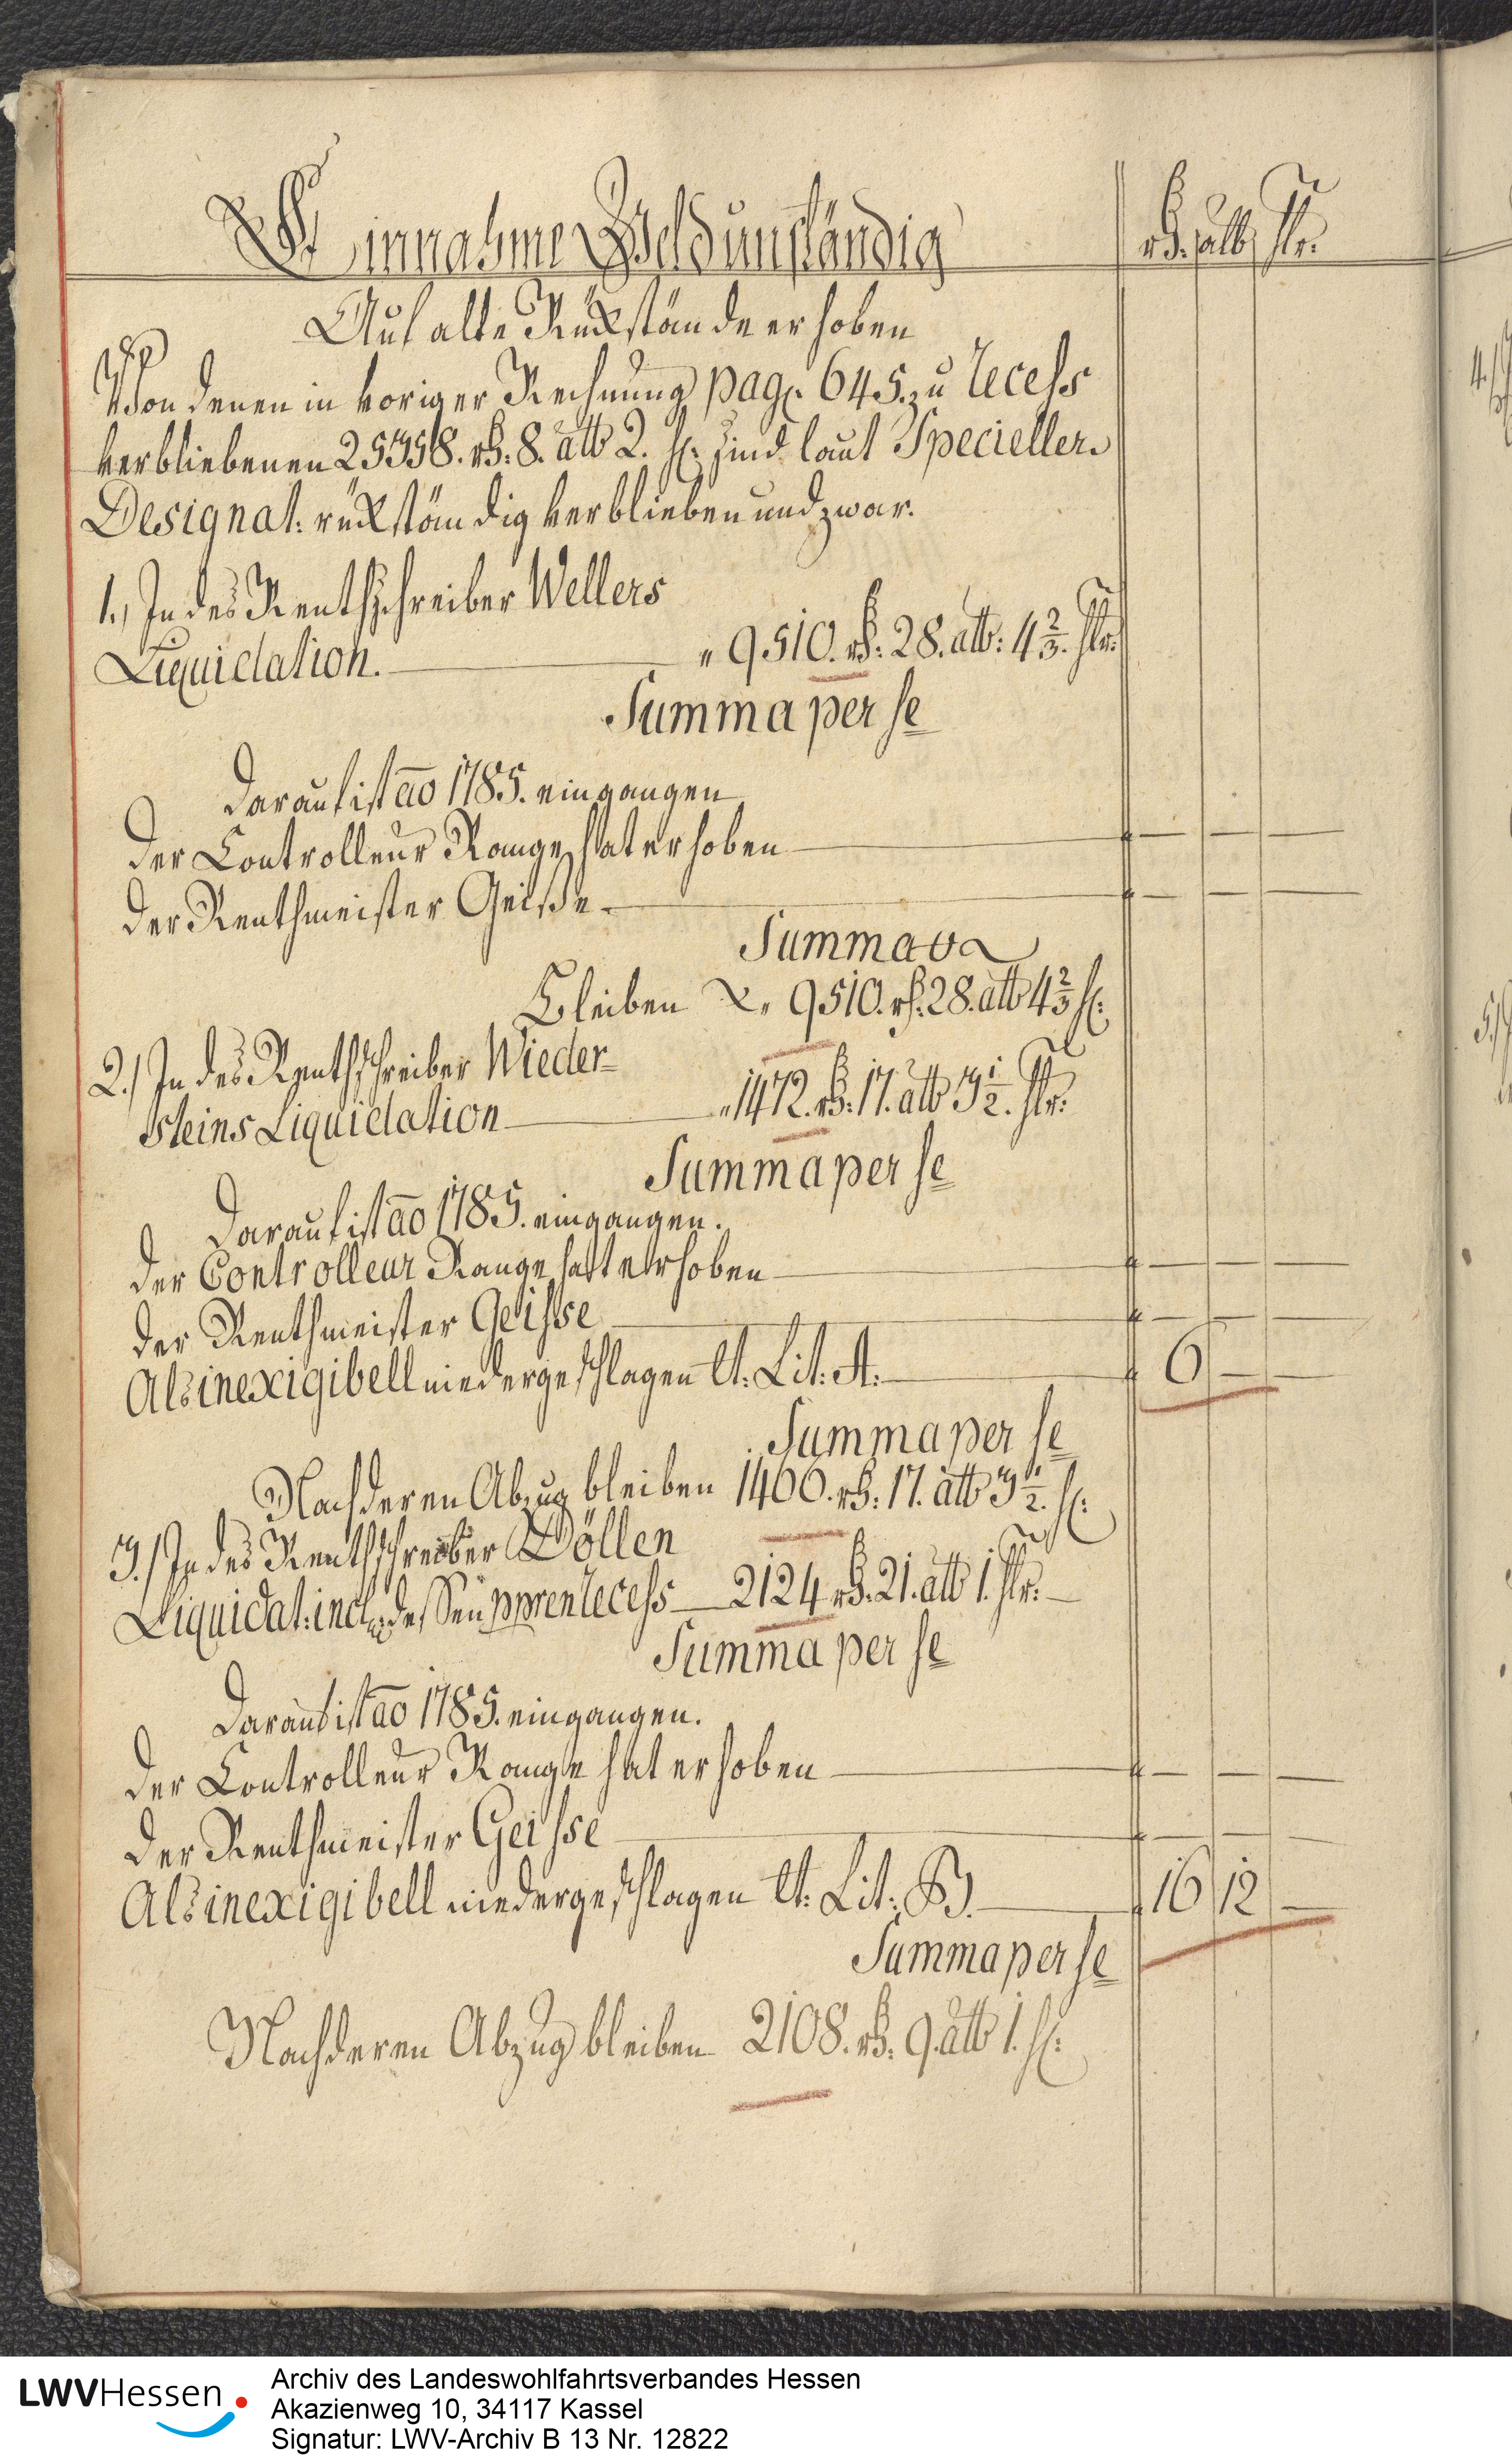 Einnahme Geld unständig rth. alb hlr.
Auf alte Rükstände erhoben
Von denen in voriger Rechnung pag. 645. zu recess
verbliebenen 25358. rth: 8. alb 2. hl: sind laut Specieller
Designat: rükständig verblieben und zwar.
1., In des Renthschreiber Wellers
Liquidation. — " 9510. rth: 28. alb: 4 2/3. hlr:
Summa per se
Darauf ist ao 1785. eingangen
Der Controlleur Range hat erhoben — " — — —
Der Renthmeister Geiße — " — — —
Summa
Bleiben " 9510. rth: 28. alb 4 2/3 hl:
2./ In des Renthschreiber Wieder=
steins Liquidation — " 1472. rth: 17. alb 3 1/2. hlr:
Summa per se
Darauf ist ao 1785. eingangen.
Der Controlleur Range hatt erhoben — " — — —
Der Renthmeister Geisse — " — — —
Als inexigibell niedergeschlagen lt: Lit: A: — " 6 — —
Summa per se
Nach deren Abzug bleiben 1466. rth: 17. alb 3 1/2. hl:
3./ In des Renthschreiber Döllen
Liquidat: incl: dessen recess — 2124 rth: 21. alb 1. hlr: —
Summa per se
Darauf ist ao 1785. eingangen.
Der Controlleur Range hat erhoben — " — — —
Der Renthmeister Geisse — " — — —
Als inexigibell niedergeschlagen lt: Lit: B. — " 16 12 —
Summa per se
Nach deren Abzug bleiben 2108. rth: 9. alb 1. hl:
LWVHessen
Archiv des Landeswohlfahrtsverbandes Hessen
Akazienweg 10, 34117 Kassel
Signatur: LWV-Archiv B 13 Nr. 12822